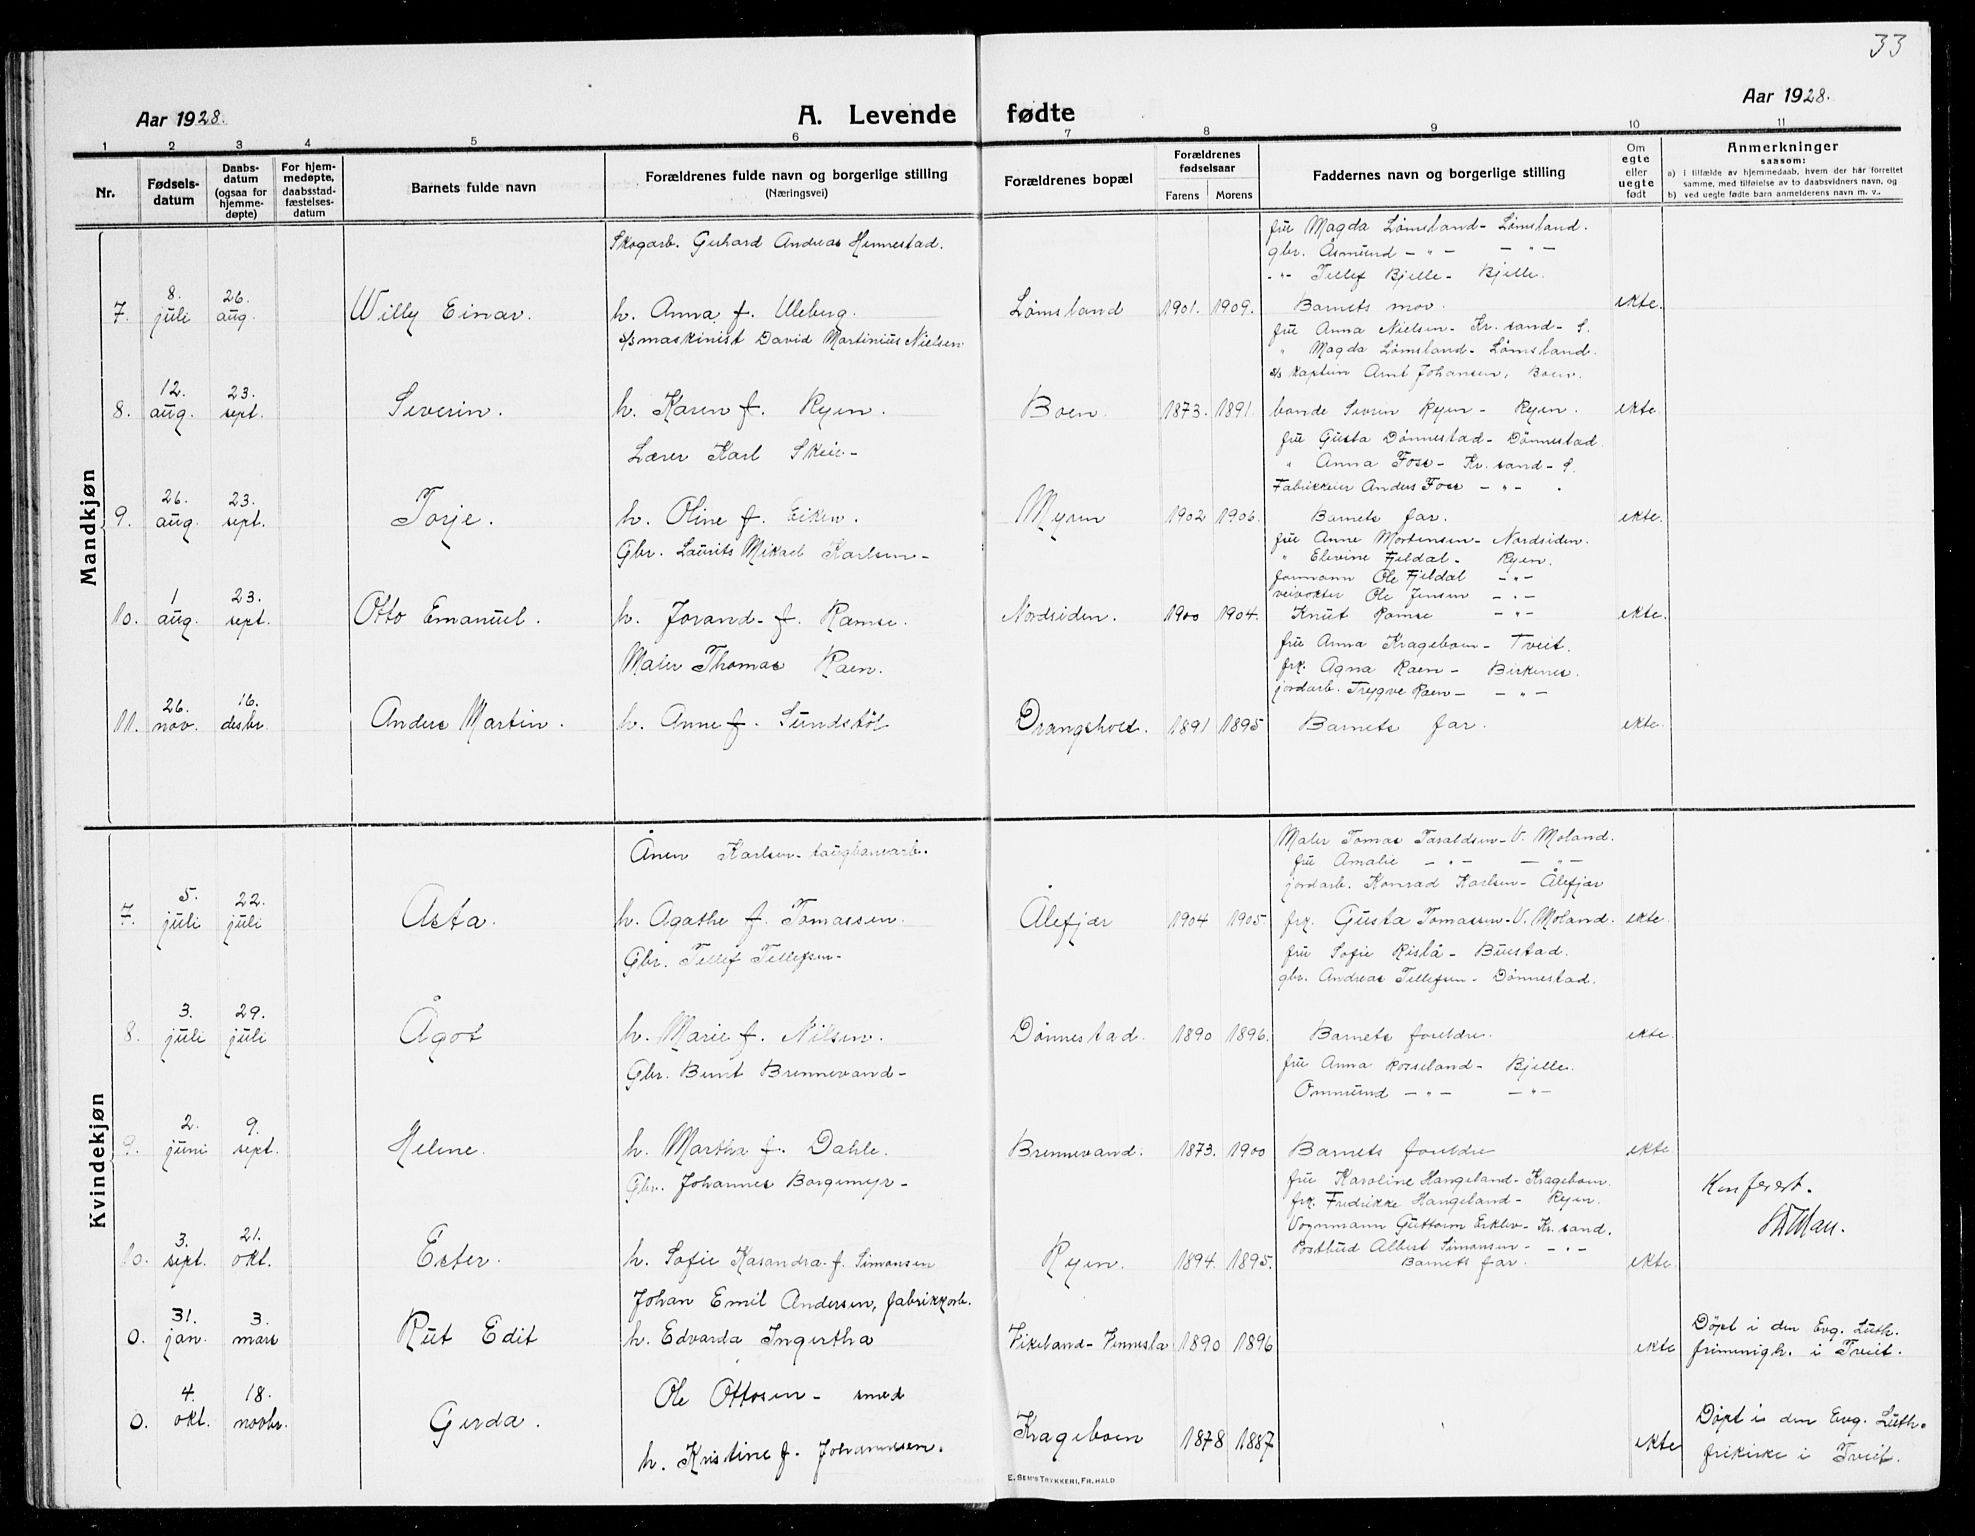 33
Aar 1928.
A. Levende fødte
Aar 1928.
1 2 3 4 5 6 7 8 9 10 11
Nr.
Fødsels-
datum
Daabs-
datum
(ogsaa for
hjemme-
døpte)
For hjem-
medøpte,
daabsstad-
fæstelses-
datum
Barnets fulde navn
Forældrenes fulde navn og borgerlige stilling
(Næringsvei)
Forældrenes bopæl
Forældrenes
fødselsaar
Farens Morens
Faddernes navn og borgerlige stilling
Om
egte
eller
uegte
født
Anmerkninger
saasom:
a) i tilfælde av hjemmedaab, hvem der har forrettet
samme, med tilføielse av to daabsvidners navn, og
b) ved uegte fødte barn anmelderens navn m. v..
Mandkjøn
Skogarb. Gerhard Andreas Hennestad.
fru Magda Lømsland - Lømsland.
gbr. Åsmund - " - - " -
- " - Tellef Bjelle - Bjelle.
7. 8. juli 26. aug. Willy Einar. h. Anna f. Uleberg. Lømsland 1901. 1909. Barnets mor. ekte.
s/s maskinist David Martinius Nielsen
fru Anna Nielsen - Kr. sand - S.
" Magda Lømsland - Lømsland.
s/s kaptein Arnt Johansen, Boen.
8. 12. aug. 23. sept. Severin. h. Karen f. Ryen. Boen. 1873. 1891. bonde Sevrin Ryen - Ryen. ekte.
Lærer Karl Skeie -
fru Gusta Dønnestad - Dønnestad.
" Anna Foss - Kr. sand - S.
Fabrikkeier Anders Foss - " - .
9. 26. aug. 23. sept. Torje. h. Oline f. Eiken. Myren 1902 1906. Barnets far. ekte.
Gbr. Laurits Mikael Karlsen -
fru Anne Mortensen - Nordsiden.
" Elevine Fjeldal - Ryen.
formann Ole Fjeldal - " -
veivokter Ole Jensen - " -
10. 1 aug. 23. sept. Otto Emanuel. h. Jorand - f. Ramse. Nordsiden. 1900 1904. Knut Ramse - " - ekte.
Maler Thomas Raen.
fru Anna Krageboen - Tveit.
frk. Agna Raen - Birkenes.
jordarb. Trygve Raen - - " -
11. 26. nov. 16. desbr. Anders Martin. h. Anne f. Sundstøl Drangsholt. 1891 1895 Barnets far. ekte.
Kvindekjøn
Ånen Karlsen - taugbanearb.
Maler Tomas Taraldsen - V. Moland.
fru Amalie - " - - " -
jordarb. Konrad Karlsen - Ålefjær
7. 5. juli 22. juli Asta. h. Agathe f. Tomassen. Ålefjær 1904 1905. frk. Gusta Tomassen - V. Moland. ekte.
Gbr. Tellef Tellefsen -
fru Sofie Rislå - Bustad.
gbr. Andreas Tellefsen - Dønnestad.
8. 3. juli 29. juli Ågot h. Marie f. Nilsen. Dønnestad. 1890 1896. Barnets foreldre. ekte.
Gbr. Bernt Brennevand -
fru Anna Rosseland - Bjelle.
Ommund - " - - " -
9. 2. juni 9. sept. Helene. h. Martha f. Dahle. Brennevand. 1873. 1900 Barnets foreldre ekte
Gbr. Johannes Borgemyr -
fru Karoline Hangeland - Krageboen.
frk. Fredrikke Hangeland - Ryen.
Vognmann Guttorm Erklev - Kr. sand.
Postbud Albert Simonsen - - " -
Konferert.
10. 3. sept. 21. okt. Ester. h. Sofie Kasandra f. Simonsen Ryen. 1894. 1895. Barnets far. ekte
Johan Emil Andersen, fabrikkarb.
0. 31. jan. 3. mars Rut Edit h. Edvarda Ingertha Vikeland - Vennesla 1890 1896 ekte
Døpt i den Evg. Luth.
frimenigh. i Tveit.
Ole Ottosen - smed
0. 4. okt. 18. novbr. Gerda. h. Kristine f. Johannesen. Krageboen 1878 1887 ekte
Døpt i den Evg. Luth.
frikirke i Tveit.
E. SEM'S TRYKKERI, FR.HALD